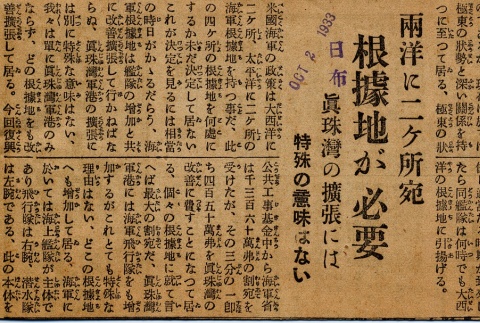 極東の狀勢と深い關係を持
つに至つて居る、極東の狀
たら同艦隊は何時でも大西
洋の根據地に引揚げる。
兩洋に二ケ所宛
根據地が必要
眞珠灣の擴張には
特殊の意味はない
OCT 2 1933
日布
米國海軍の政策は大西洋に
二ケ所、太平洋に二ケ所の
海軍根據地を持つ事だ、此
の四ケ所の根據地を何處に
するか未だ決定して居ない
これが決定を見るには相當
の時日がかゝるだらう、海
軍根據地は艦隊の增加と共
に改善擴張して行かねばな
らぬ、眞珠灣軍港の擴張に
は別に特殊な意味はない、
我々は單に眞珠灣軍港のみ
ならず、どの根據地をも改
善擴張して居る。今回復興
公共工事基金中から海軍省
は千三百六十萬弗の割宛を
受けたが、その三分の一卽
ち四百五十萬弗を眞珠灣の
改善に費すことになつて居
る、個々の根據地に就て言
へば最大の割宛だ、眞珠灣
軍港には海軍飛行隊をも增
加するがこれとても特殊な
理由はない、どこの根據地
へも增加して居る。海軍に
於いては海上艦隊が主體で
あり飛行隊は右腕、潛水隊
は左腕である　此の本體を